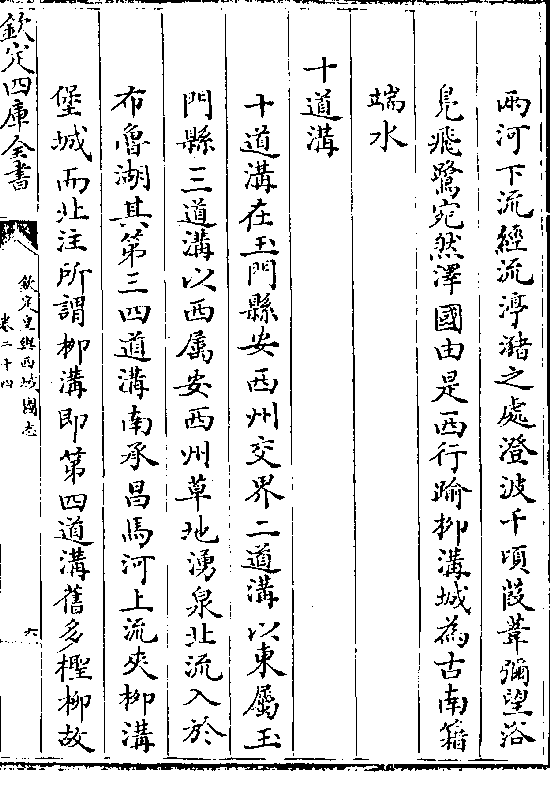 兩河下流經流渟瀦之處澄波千頃葭葦彌望浴
鳬飛鷺宛然澤國由是西行踰柳溝城為古南籍
端水
十道溝
十道溝在玉門縣安西州交界二道溝以東屬玉
門縣三道溝以西屬安西州草地湧泉北流入於
布魯湖其第三四道溝南承昌馬河上流夾柳溝
堡城而北注所謂柳溝即第四道溝舊多檉柳故
欽定四庫全書
欽定皇輿西域圖志
卷二十四
六